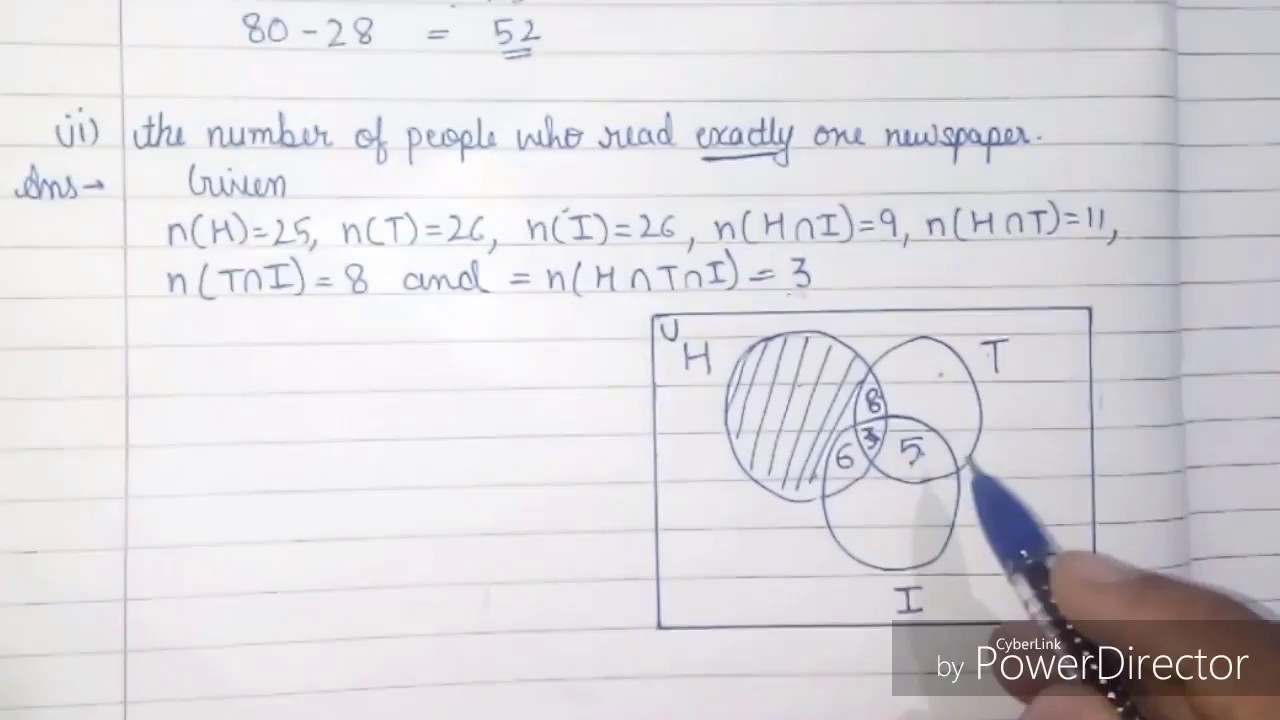 80 - 28 = 52
ii) the number of people who read exactly one newspaper.
Ans → Given
n(H)=25, n(T)=26, n(I)=26, n(H∩I)=9, n(H∩T)=11,
n(T∩I)=8 and = n(H∩T∩I)=3
U
H T
8
3
6 5
I
CyberLink
by PowerDirector